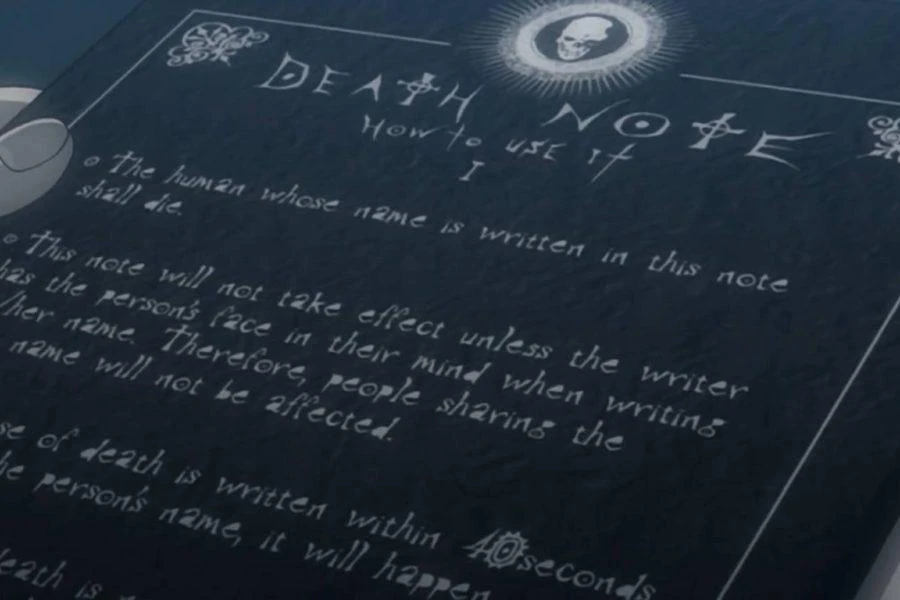 DEATH NOTE
How to use it
I
The human whose name is written in this note
shall die.
This note will not take effect unless the writer
has the person's face in their mind when writing
/her name. Therefore, people sharing the
name will not be affected.
of death is written within 40 seconds
the person's name, it will happen
death is